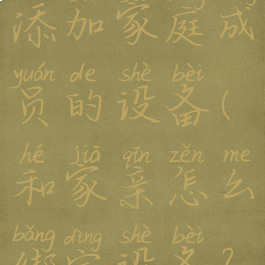 添加家庭成
yuán de shè bèi
员的设备(
hé jiā qīn zěn me
和家亲怎么
bǎng dìng shè bèi
绑定设备?